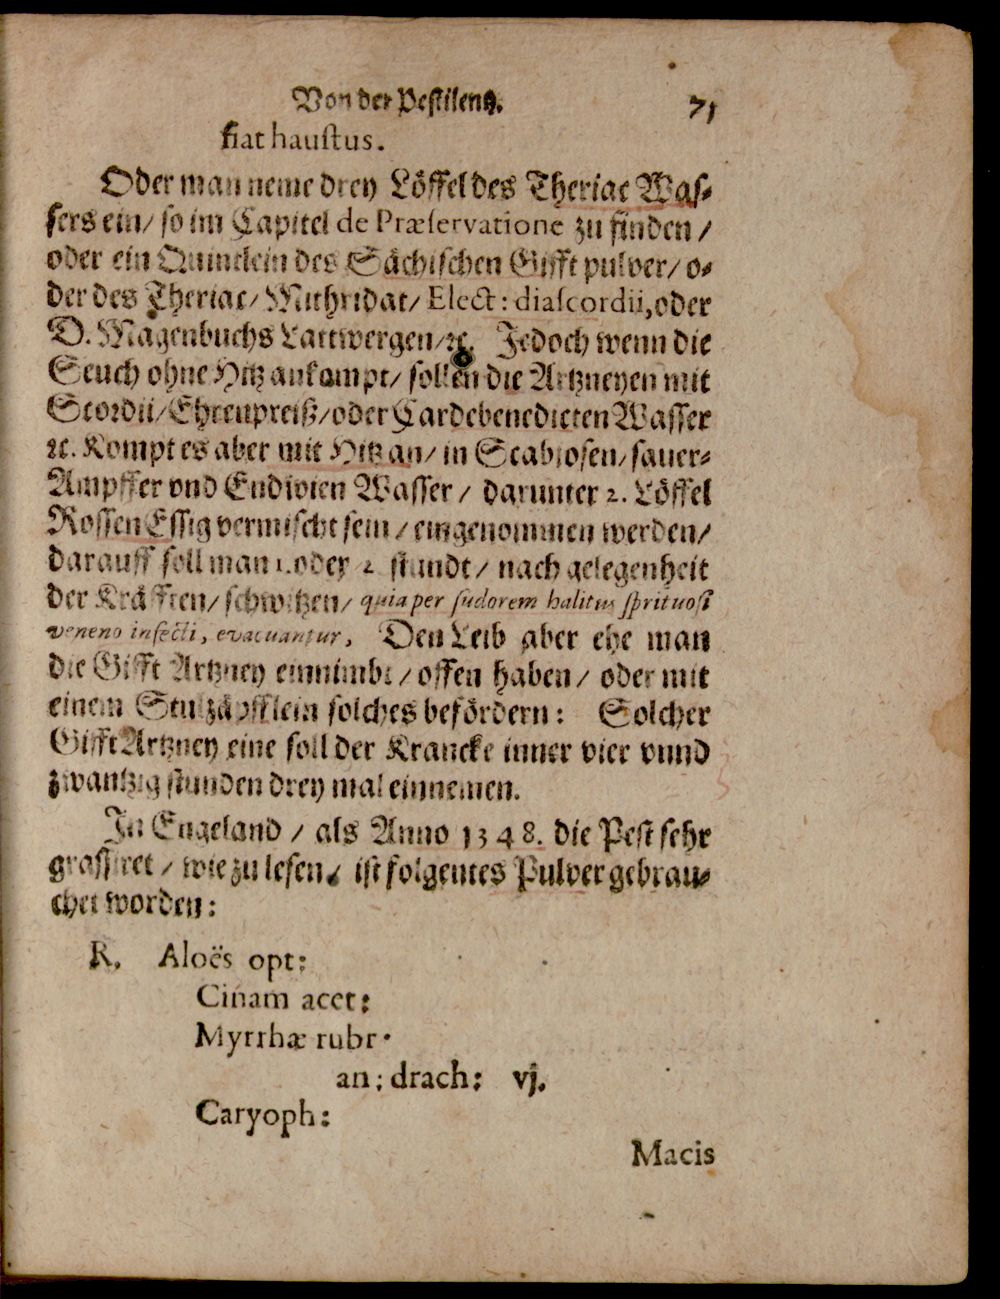 Von der Pestilentz.    71
fiat haustus.
Oder man neme drey Löffel des Theriac Was-
sers ein/ so im Capitel de Præservatione zu finden/
oder ein Quintlein des Sächischen Gifft pulver/ o-
der des Theriac/ Mithridat/ Elect: diascordii, oder
D. Magenbuchs Lattwergen/ ꝛc. Jedoch wenn die
Seuch ohne Hitz ankompt/ sollen die Artzneyen mit
Scordii/ Ehrenpreiß/ oder Cardebenedicten Wasser
ꝛc. Kompt es aber mit Hitz an/ in Scabiosen/ sauer-
Ampffer vnd Endivien Wasser/ darunter 2. Löffel
Rossen Essig vermischt sein/ eingenommen werden/
darauff soll man 1. oder 2 stundt/ nach gelegenheit
der Kräfften/ schwitzen/ quia per sudorem halitus sprituosi
veneno infecti, evacuantur, Den Leib aber ehe man
die Gifft Artzney einnimbt/ offen haben/ oder mit
einem Stulzäpfflein solches befördern: Solcher
Gifft Artzney eine soll der Krancke inner vier vnnd
zwantzig stunden drey mal einnemen.
In Engeland/ als Anno 1348. die Pest sehr
grassiret/ wie zu lesen/ ist folgentes Pulver gebrau-
chet worden:
R. Aloës opt:
Cinam acet:
Myrrhæ rubr.
an: drach: vj.
Caryoph:
Macis